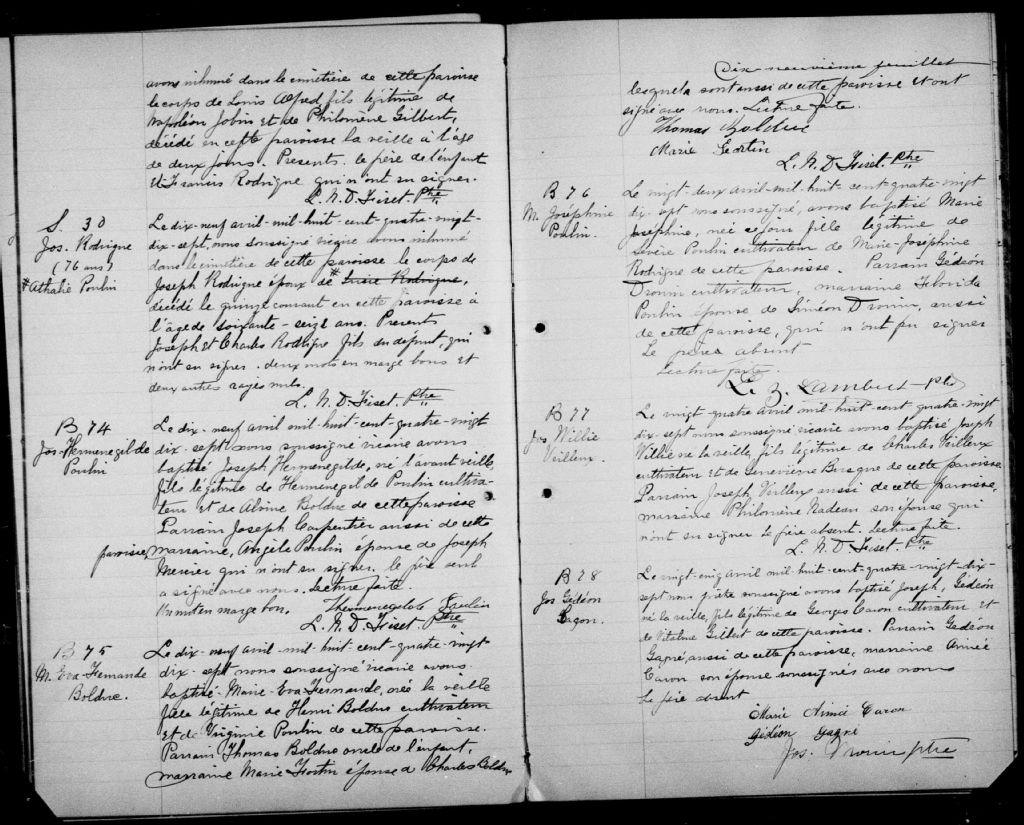 avons inhumé dans le cimetière de cette paroisse
le corps de Louis Alfred, fils légitime de
Napoléon Jobin et de Philomène Gilbert,
décédé en cette paroisse la veille à l'âge
de deux jours. Presents. le père de l'enfant
et Francis Rodrigue qui n'ont su signer.
L. N. D. Fiset. Ptre
S. 30
Jos. Rodrigue
(76 ans)
# Athalie Poulin
Le dix-neuf avril-mil-huit-cent-quatre-vingt-
dix-sept, nous soussigné vicaire avons inhumé
dans le cimetière de cette paroisse le corps de
Joseph Rodrigue époux de # Luce Rodrigue,
décédé le quinze courant en cette paroisse à
l'âge de soixante-seize ans. Presents
Joseph et Charles Rodrigue fils du defunt, qui
n'ont su signer. deux mots en marge bons et
deux autres rayés nuls.
L. N. D. Fiset. Ptre
B 74
Jos-Hermenegilde
Poulin
Le dix-neuf avril-mil-huit-cent-quatre-vingt
dix-sept nous soussigné vicaire avons
baptisé Joseph Hermenegilde, né l'avant veille
fils légitime de Hermenegilde Poulin cultiva-
teur et de Albine Bolduc de cette paroisse
Parrain Joseph Carpentier aussi de cette
paroisse, marraine, Angèle Poulin épouse de Joseph
Mercier qui n'ont su signer. le père seul
a signé avec nous. Lecture faite.
Un mot en marge bon. Hermenegilde Poulin
L. N. D. Fiset. Ptre
B 75
M. Eva-Fernande
Bolduc.
Le dix-neuf avril-mil-huit-cent-quatre-vingt
dix-sept nous soussigné vicaire avons
baptisé Marie-Eva Fernande, née la veille
fille légitime de Henri Bolduc cultivateur
et de Virginie Poulin de cette paroisse.
Parrain Thomas Bolduc oncle de l'enfant,
marraine Marie Fortin épouse de Charles Bolduc
Dix neuvième feuillet
lesquels sont aussi de cette paroisse et ont
signé avec nous. Lecture faite.
Thomas Bolduc
Marie Fortin
L. N. D. Fiset. Ptre
B 76
M. Joséphine
Poulin.
Le vingt-deux avril-mil-huit-cent-quatre-vingt
dix-sept nous soussigné, avons baptisé Marie
Josephine, née ce jour fille légitime de
Sévère Poulin cultivateur de Marie-Joséphine
Rodrigue de cette paroisse. Parrain Gédéon
Drouin cultivateur, marraine Floorida
Poulin épouse de Siméon Drouin, aussi
de cette paroisse, qui n'ont pu signer
Le père absent
Lecture faite.
L. Z. Lambert-Ptre
B 77
Jos Willie
Veilleux.
Le vingt-quatre avril mil-huit-cent-quatre-vingt
dix-sept nous soussigné vicaire avons baptisé Joseph
Willie né la veille, fils légitime de Charles Veilleux
cultivateur et de Geneviève Busque de cette paroisse.
Parrain Joseph Veilleux aussi de cette paroisse,
marraine Philomène Nadeau son épouse qui
n'ont su signer le père absent. Lecture faite.
L. N. D. Fiset. Ptre
B 78
Jos Gédéon
Caron.
Le vingt-cinq avril mil-huit-cent-quatre-vingt-dix-
sept nous prêtre soussigné avons baptisé Joseph, Gédéon
né la veille, fils légitime de Georges Caron cultivateur et
de Vitaline Gilbert de cette paroisse. Parrain Gédéon
Gagné aussi de cette paroisse, marraine Aimée
Caron son épouse soussignés avec nous
Le père absent
Marie Aimée Caron
Gédéon Gagné
Jos. Drouin ptre